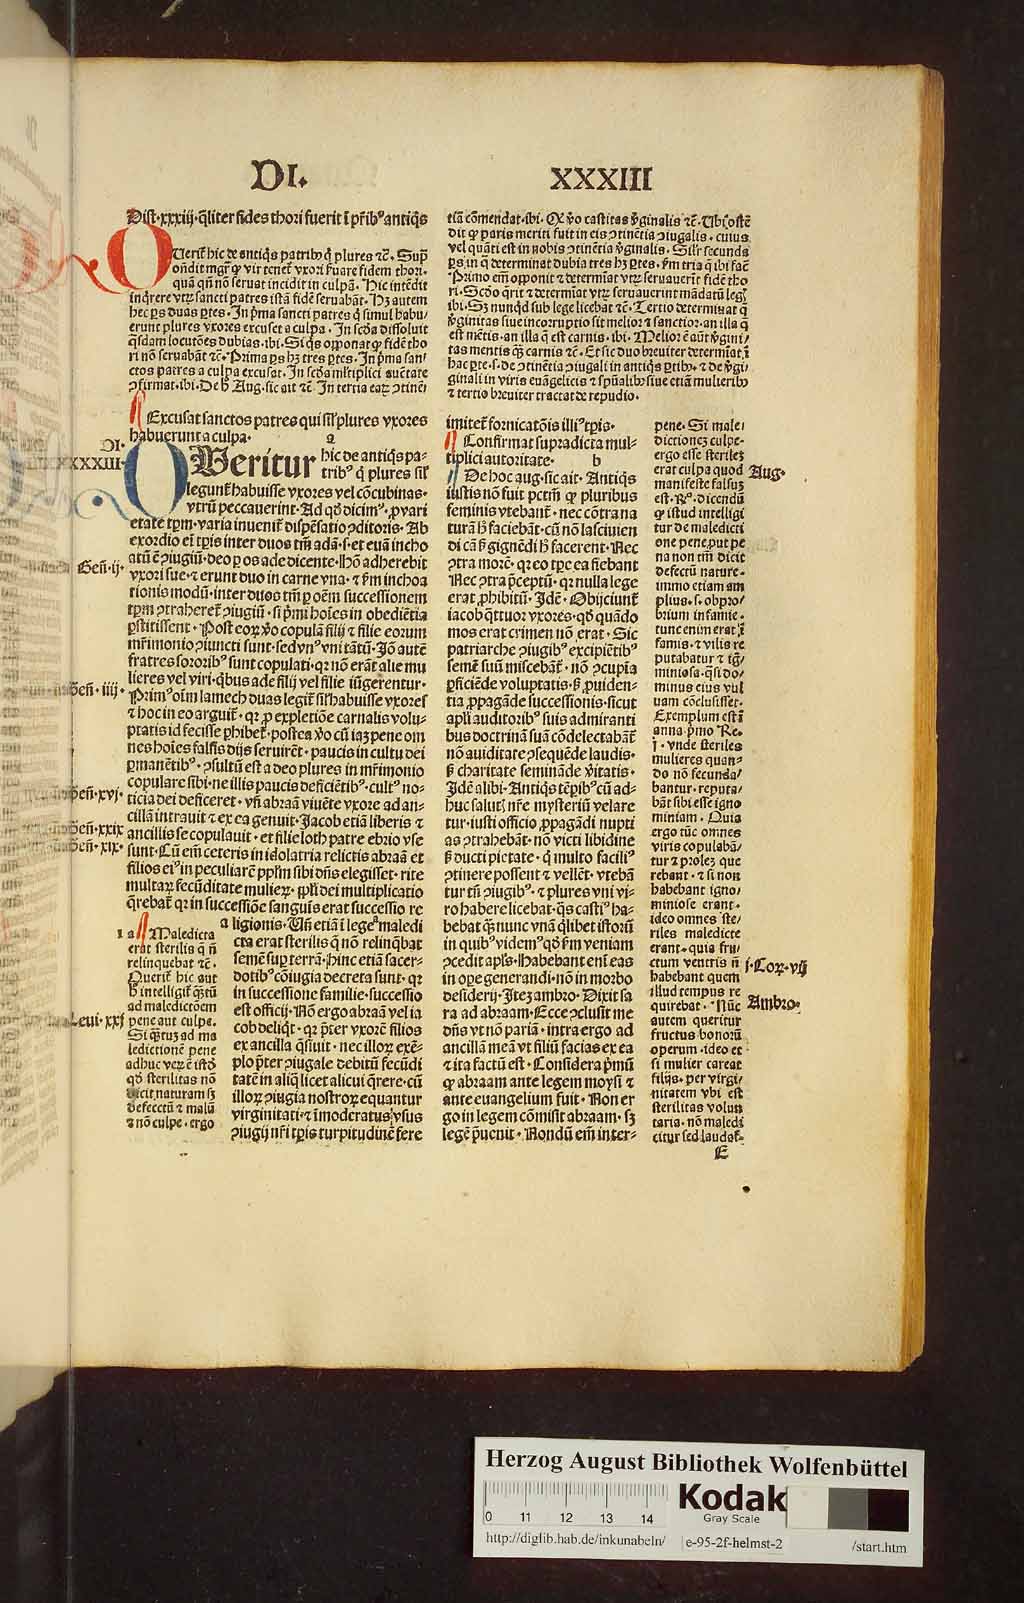 DI.
XXXIII
Dist.xxxiij.q̄liter fides thori fuerit ī p̄rib⁹ antiq̄s
QUerit̄ hic de antiq̄s patrib⁹ q̄ plures ⁊c̄. Sup̄
ondit mgr̄ ꝙ vir tenet̄ vxori ẜuare fidem thori.
quā qn̄ nō seruat incidit in culpā. Hic intēdit
inq̄rere vtrꝫ sancti patres istā fidē seruabāt. Hꝫ autem
hec p̄s duas p̄tes. In p̄ma sancti patres q̄ simul habu/
erunt plures vxores excuset a culpa. In sc̄da dissoluit
q̄sdam locutōes dubias. ibi. Si q̄s opponat ꝙ fidē tho
ri nō seruabāt ⁊c̄. Prima p̄s hꝫ tres p̄tes. In p̄ma san/
ctos patres a culpa excusat. In sc̄da ml̄tiplici auc̄tate
ꝯfirmat. ibi. De h̄ Aug. sic ait ⁊c̄. In tertia eaꝝ ꝯtinē/
tiā cōmendat. ibi. Qꝛ v̄o castitas v̄ginalis ⁊c̄. Ubi ostē
dit ꝙ paris meriti fuit in eis ꝯtinētia ꝯiugalis. cuius
vel quāti est in nobis ꝯtinētia v̄ginalis. Sil̄r secunda
p̄s in q̄ determinat dubia tres hꝫ p̄tes. ẜm tria q̄ ibi fac̄
Primo em̄ opponit ⁊ determiat vtrꝫ seruauerīt fidē tho
ri. Sc̄do q̄rit ⁊ determiat vtrꝫ seruauerint mādatū legꝭ
ibi. Sꝫ nunq̄d sub lege licebat ⁊c̄. Tertio determinat q̄
v̄ginitas siue incorruptio sit melior ⁊ sanctior. an illa q̄
est mētis. an illa q̄ est carnis. ibi. Melior ē aūt v̄gini/
tas mentis q̄ꝫ carnis ⁊c̄. Et sic duo breuiter determiat. ī
hac p̄te. s. de ꝯtinētia ꝯiugali in antiq̄s p̄trib⁹. ⁊ de v̄gi/
ginali in viris euāgelicis ⁊ sp̄ualib⁹ siue etiā mulierib⁹
⁊ tertio breuiter tractat de repudio.
Excusat sanctos patres qui sil̄ plures vxores
habuerunt a culpa. a
DI.
XXXIII.
QUeritur hic de antiq̄s pa-
trib⁹ q̄ plures sil̄
legunt̄ habuisse vxores vel cōcubinas.
vtrū peccauerint. Ad qd̄ dicim⁹. ꝓ vari
etate tp̄m. varia inuenit̄ dispēsatio ꝯditoris. Ab
exordio ei⁹ tp̄is inter duos tm̄ adā. s. et euā incho
atū ē ꝯiugiū. deo ꝑ os ade dicente. Hō adherebit
Geñ.ij.
vxori sue. ⁊ erunt duo in carne vna. ⁊ ẜm inchoa
tionis modū. inter duos tm̄ ꝑ oēm successionem
tp̄m ꝯtraheret̄ ꝯiugiū. si p̄mi hoīes in obediētia
ꝑstitissent. Post eoꝝ v̄o copulā filij ⁊ filie eorum
mr̄imonio ꝯiuncti sunt. sed vn⁹ vni tātū. Jō autē
fratres sororib⁹ sunt copulati. qꝛ nō erāt alie mu
lieres vel viri. q̄bus ade filij vel filie iūgerentur.
Prim⁹ oīm lamech duas legit̄ sil̄ habuisse vxores
Geñ.iiij.
⁊ hoc in eo arguit̄. qꝛ ꝓ expletiōe carnalis volu-
ptatis id fecisse ꝑhibet̄. postea v̄o cū iaꝫ pene om
nes hoīes falsis dijs seruirēt. paucis in cultu dei
ꝑmanētib⁹. ꝯsultū est a deo plures in mr̄imonio
copulare sibi. ne illis paucis deficiētib⁹. cult⁹ no-
ticia dei deficeret. vñ abraā viuēte vxore ad an-
Geñ.xvj.
cillā intrauit ⁊ ex ea genuit. Jacob etiā liberis ⁊
ancillis se copulauit. et filie loth patre ebrio vse
Geñ.xxix
sunt. Cū em̄ ceteris in idolatria relictis abraā et
Geñ.xix.
filios ei⁹ in peculiarē pplm̄ sibi dn̄s elegisset. rite
multaꝝ fecūditate mulieꝝ. ppl̄i dei multiplicatio
q̄rebat̄. qꝛ in successiōe sanguīs erat successio re
a ligionis. Uñ etiā ī lege a maledi
cta erat sterilis q̄ nō relinq̄bat
semē sup̄ terrā. Hinc etiā sacer-
dotib⁹ cōiugia decreta sunt. qꝛ
in successione familie. successio
est officij. Nō ergo abraā vel ia
Leui.xxj
cob deliq̄t. qꝛ p̄ter vxorē filios
ex ancilla q̄siuit. nec illoꝝ exē-
plo p̄ter ꝯiugale debitū fecūdi
tatē in aliq̄ licet alicui q̄rere. cū
illoꝝ ꝯiugia nostroꝝ equantur
virginitati. ⁊ īmoderatus vsus
ꝯiugij nr̄i tp̄is turpitudinē fere
1 a Maledicta
erat sterilis q̄ n̄
relinquebat ⁊c̄.
Querit̄ hic aut
h̄ intelligit̄ q̄ꝫtū
ad maledictōem
pene aut culpe.
Si q̄ꝫtuꝫ ad ma
ledictionē pene
adhuc veꝝ ē istō
qd̄ sterilitas nō
dicit naturam sꝫ
defectū ⁊ malū
⁊ nō culpe. ergo
imitet̄ fornicatōis illi⁹ tp̄is.
Confirmat supradicta mul-
tiplici autoritate. b
De hoc aug. sic ait. Antiq̄s
Aug.
iustis nō fuit pctm̄ ꝙ pluribus
feminis vtebant̄. nec cōtra na
turā h̄ faciebāt. cū nō lasciuien
di cā ẜ gignēdi h̄ facerent. Nec
ꝯtra morē. qꝛ eo tp̄e ea fiebant
Nec ꝯtra p̄ceptū. qꝛ nulla lege
erat ꝓhibitū. Jdē. Obijciunt̄
iacob q̄ttuor vxores. qd̄ quādo
mos erat crimen nō erat. Sic
patriarche ꝯiugib⁹ excipiētib⁹
semē suū miscebāt. nō ꝯcupīa
ꝑficiēde voluptatis. ẜ ꝓuiden-
tia ꝓpagāde successionis. sicut
apl̄i auditorib⁹ suis admiranti
bus doctrinā suā cōdelectabāt̄
nō auiditate ꝯsequēde laudis.
ẜ charitate semināde v̄itatis.
Jdē alibi. Antiq̄s tēꝑib⁹ cū ad-
huc salutꝭ nr̄e mysteriū velare
tur. iusti officio ꝓpagādi nupti
as ꝯtrahebāt. nō victi libidine
ẜ ducti pietate. q̄ multo facili⁹
ꝯtinere possent ⁊ vellēt. vtebā
tur tn̄ ꝯiugib⁹. ⁊ plures vni vi-
ro habere licebat. q̄s casti⁹ ha-
bebat q̄ꝫ nunc vnā q̄libet istorū
in quib⁹ videm⁹ qd̄ ẜm veniam
j.Coꝝ.vij
ꝯcedit apl̄s. Habebant em̄ eas
in oꝑe generandi. nō in morbo
desiderij. Iteꝫ ambro. Dixit sa
Ambro.
ra ad abraam. Ecce ꝯclusit me
dn̄s vt nō pariā. intra ergo ad
ancillā meā vt filiū facias ex ea
⁊ ita factū est. Considera p̄mū
ꝙ abraam ante legem moysi ⁊
ante euangelium fuit. Non er
go in legem cōmisit abraam. sꝫ
legē p̄uenit. Nondū em̄ inter-
pene. Si male/
dictioneꝫ culpe.
ergo esse sterileꝫ
erat culpa quod
manifeste falsuꝫ
est. Rº. dicendū
ꝙ istud intelligi
tur de maledicti
one pene. put pe
na non tm̄ dicit
defectū nature.
immo etiam am
plius. s. obpro/
brium infamie.
tunc enim erat ī
famis. ⁊ vilis re
putabatur ⁊ ig/
miniosa. q̄si do/
minus eius vul
uam cōclusisset.
Exemplum est ī
anna p̄mo Re.
j. vnde steriles
mulieres quan-
do nō fecunda/
bantur. reputa/
bāt sibi esse igno
miniam. Quia
ergo tūc omnes
viris copulabā/
tur ⁊ proleꝫ que
rebant. ⁊ si non
habebant igno/
miniose erant.
ideo omnes ste/
riles maledicte
erant. quia fru/
ctum ventris n̄
habebant quem
illud tempus re
quirebat. Nūc
autem queritur
fructus bonorū
operum. ideo et
si mulier careat
filijs. per virgi/
nitatem vbi est
sterilitas volun
taria. nō maledi
citur sed laudat̄.
E
Herzog August Bibliothek Wolfenbüttel
0 11 12 13 14
Kodak
Gray Scale
http://diglib.hab.de/inkunabeln/
e-95-2f-helmst-2
/start.htm